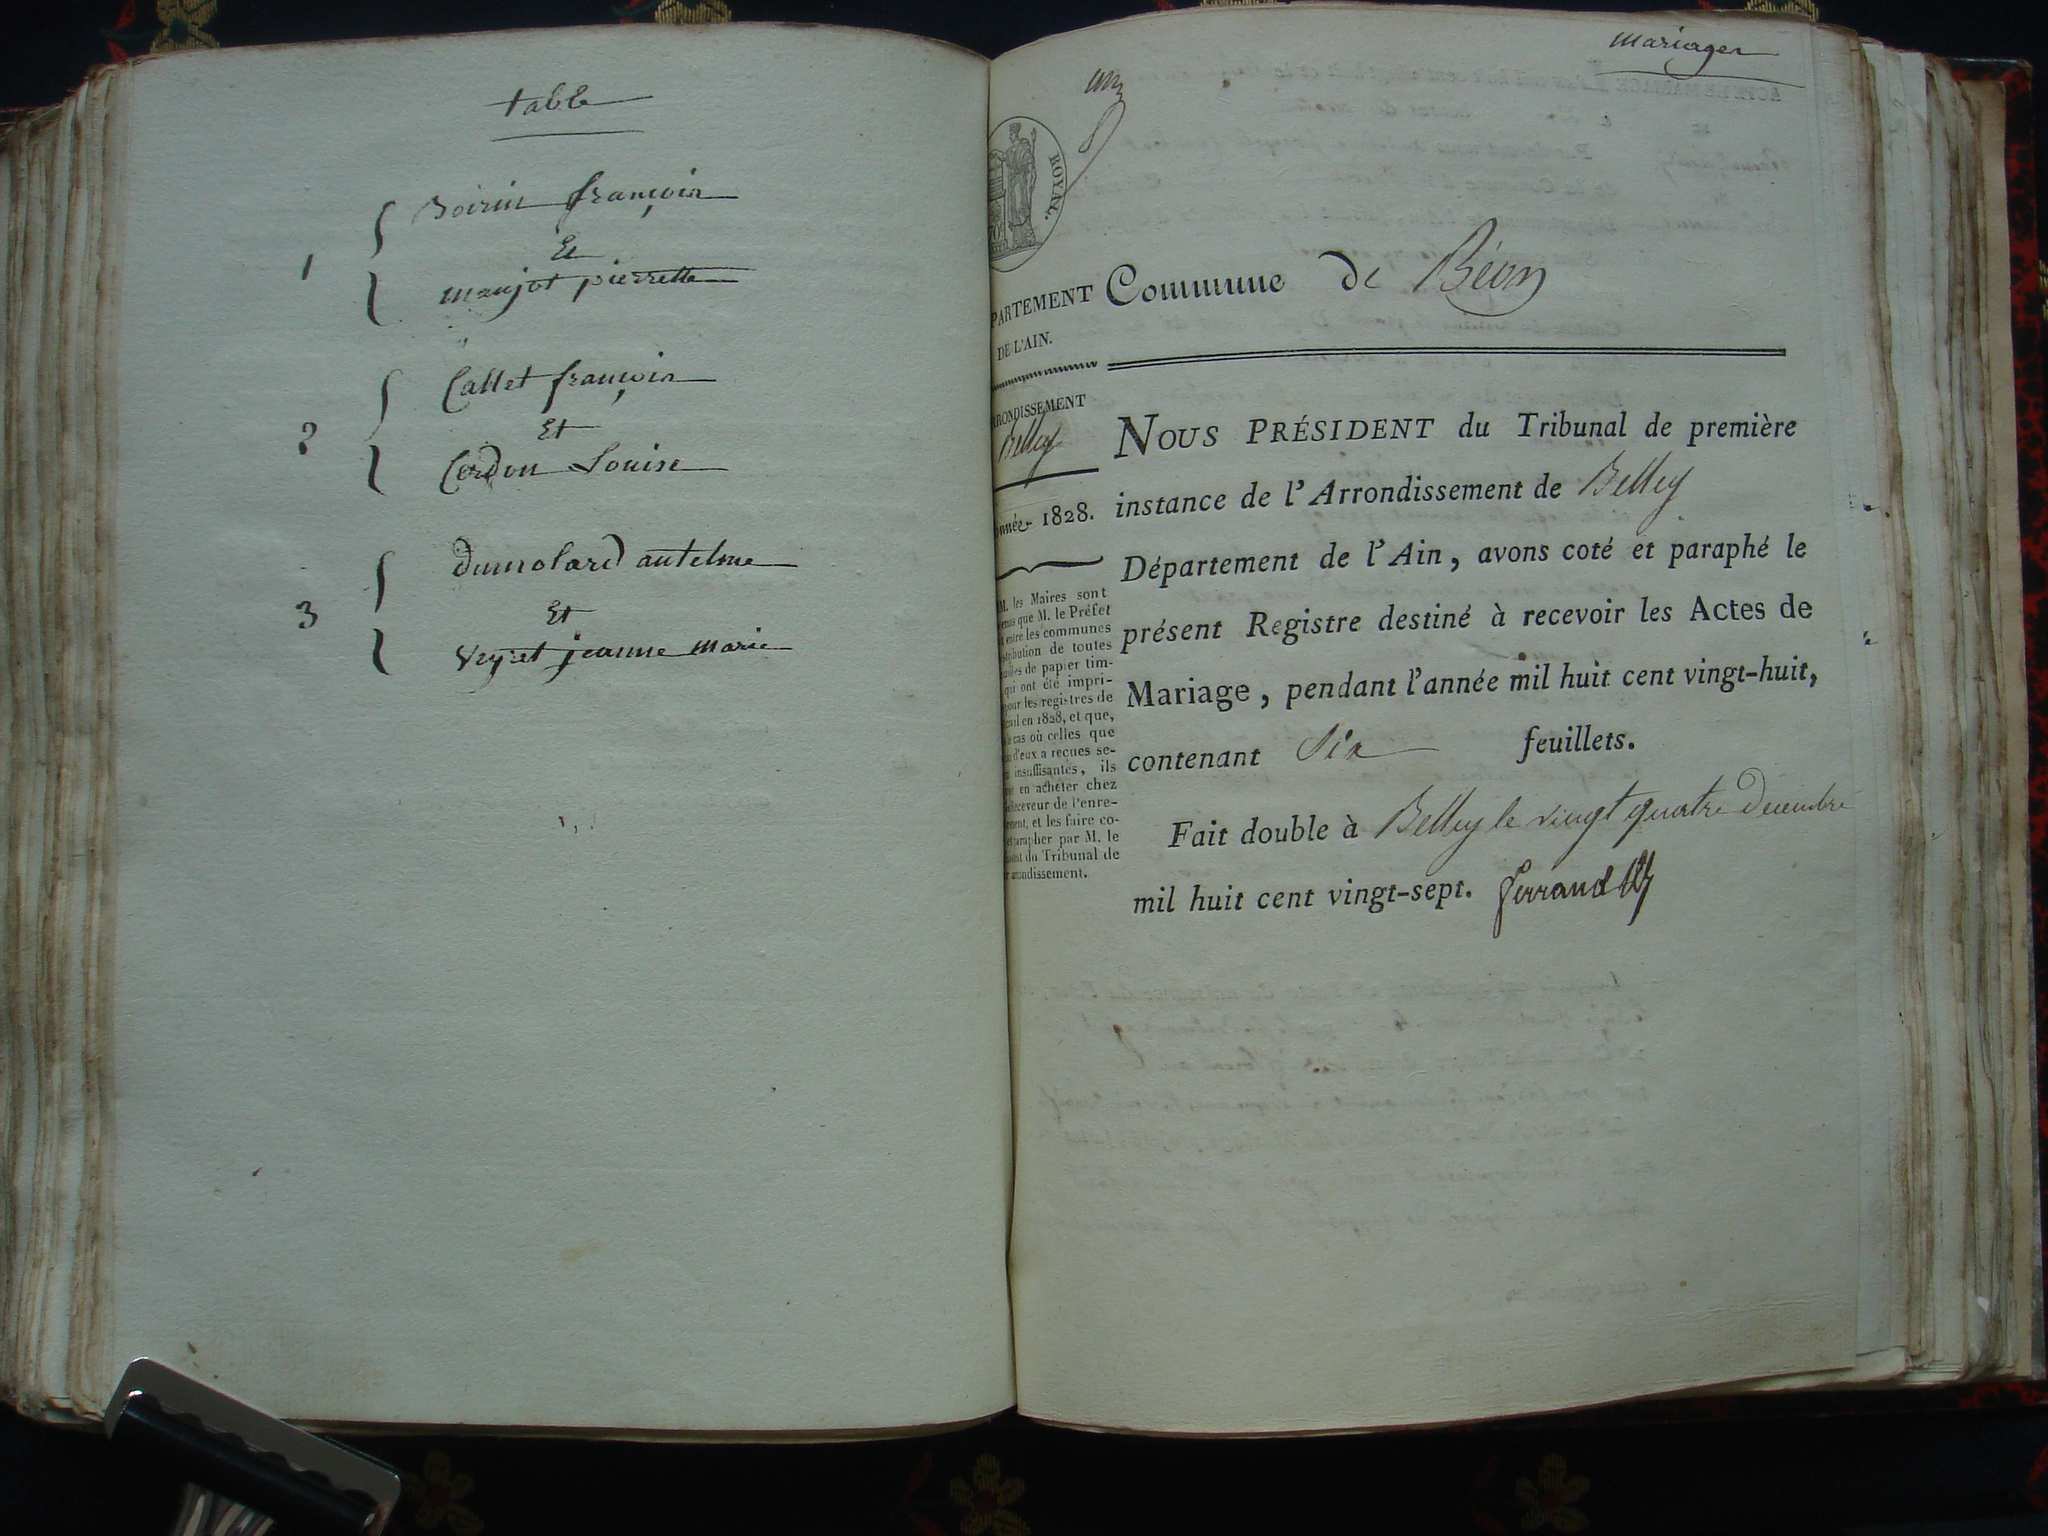 table
1
Boirin françois
Et
manjot pierrette
2
Callet françois
Et
Cordon Louise
3
dumolard antelme
Et
Veyret jeanne marie
mariages
ROYAL.
PARTEMENT
DE L'AIN.
RONDISSEMENT
Belley
année 1828.
M. les Maires sont
que M. le Préfet
entre les communes
tribution de toutes
de papier tim-
qui ont été impri-
pour les registres de
en 1828, et que,
le cas où celles que
d'eux a reçues se-
insuffisantes, ils
en acheter chez
Receveur de l'enre-
ment, et les faire co-
parapher par M. le
du Tribunal de
arrondissement.
Commune de Béon
NOUS PRÉSIDENT du Tribunal de première
instance de l'Arrondissement de Belley
Département de l'Ain, avons coté et paraphé le
présent Registre destiné à recevoir les Actes de
Mariage, pendant l'année mil huit cent vingt-huit,
contenant Six feuillets.
Fait double à Belley le vingt quatre Decembre
mil huit cent vingt-sept. ferrand